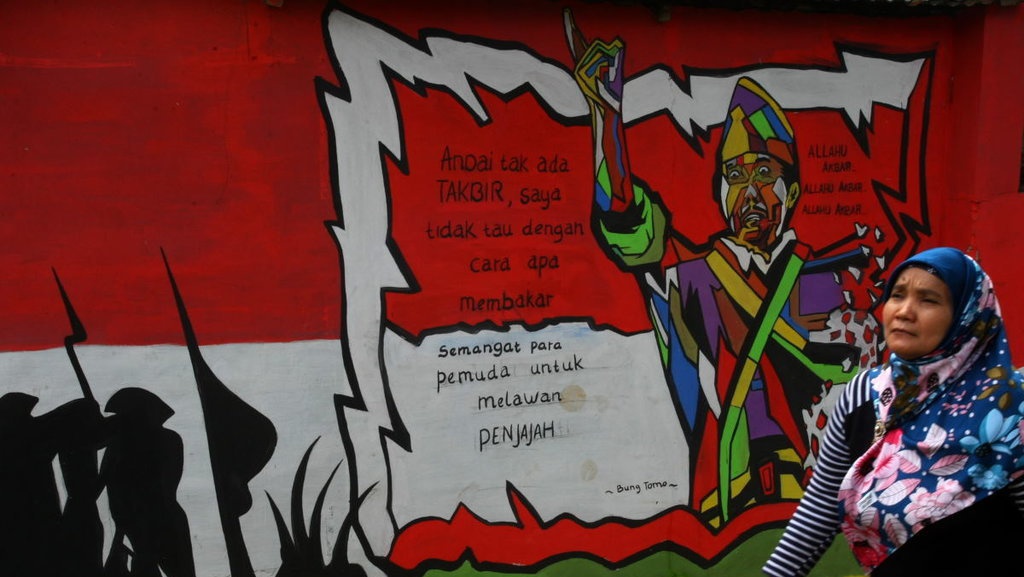 Andai tak ada
TAKBIR, saya
tidak tau dengan
cara apa
membakar
semangat para
pemuda untuk
melawan
PENJAJAH
~ Bung Tomo ~
ALLAHU
AKBAR..
ALLAHU AKBAR..
ALLAHU AKBAR...